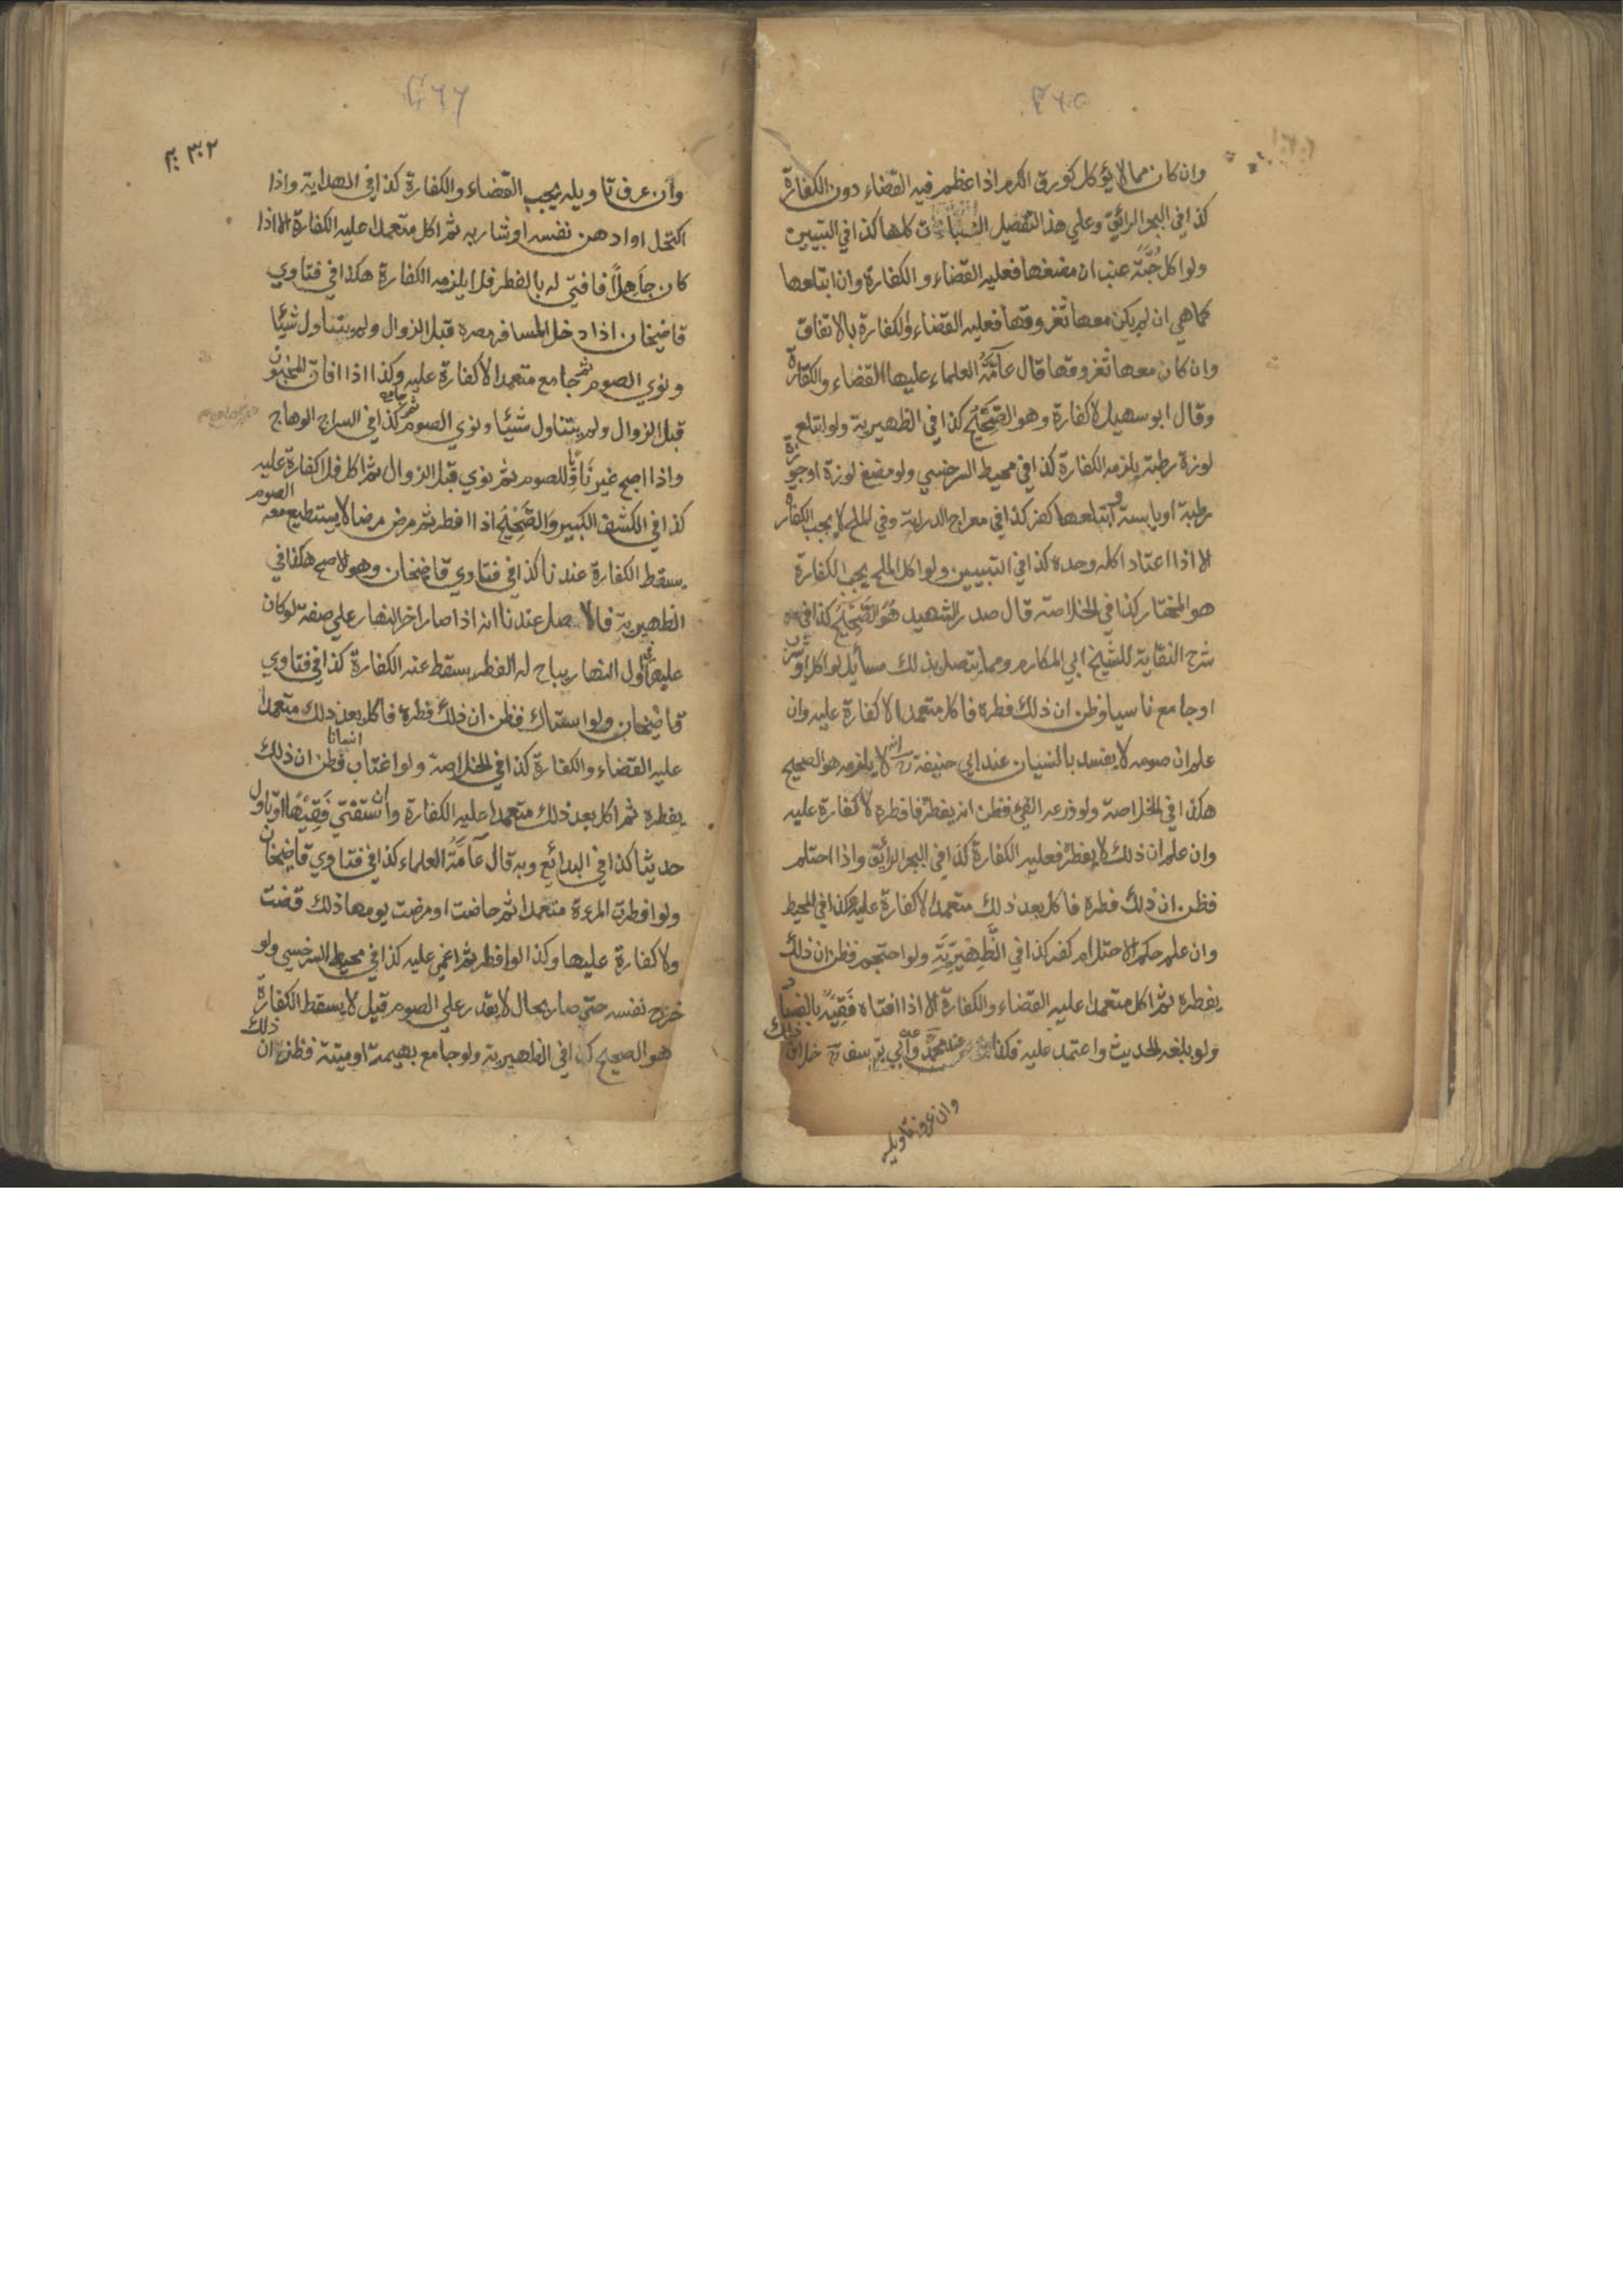 ٤٦٥
وان كان مما لا يؤكل كورق الكرم اذا عظم فيه القضاء دون الكفارة
كذا في البحر الرائق وعلي هذا التفصيل النباتات كلها كذا في التبيين
ولو اكل حبّة عنب ان مضغها فعليه القضاء والكفارة وان ابتلعها
كما هي ان لم يكن معها ثفروقها فعليه القضاء والكفارة بالاتفاق
وان كان معها ثفروقها قال عامّة العلماء عليها القضاء والكفارة
وقال ابو سهيل لا كفارة وهو الصّحيح كذا في الظهيرية ولو ابتلع
لوزة رطبة يلزمه الكفارة كذا في محيط السرخسي ولو مضغ لوزة او جوزة
رطبة او يابسة وابتلعها كفر كذا في معراج الدراية وفي الملح لا يجب الكفارة
الا اذا اعتاد اكله وحده كذا في التبيين ولو اكل الملح يجب الكفارة
هو المختار كذا في الخلاصة قال صدر الشهيد هُوَ الصَّحِيْحُ كذا في
شرح النقاية للشيخ ابي المكارم ومما يتصل بذلك مسايل لو اكل او شرب
او جامع ناسيا وظن ان ذلك فطره فاكل متعمدا لا كفارة عليه وان
علم ان صومه لا يفسد بالنسيان عند ابي حنيفة رح انه لا يلزمه هو الصحيح
هكذا في الخلاصة ولو ذرعه القئ فظن انه يفطر فافطره لا كفارة عليه
وان علم ان ذلك لا يفطر فعليه الكفارة كذا في البحر الرائق واذا احتلم
فظن ان ذلك فطره فاكل بعد ذلك متعمدا لا كفارة عليه هكذا في المحيط
وان علم حكم الاحتلام كفر كذا في الظَّهِيْرِيَّةِ ولو احتجم فظن ان ذلك
يفطره ثم اكل متعمدا عليه القضاء والكفارة الا اذا افتاه فَقِيْهٌ بالفساد
ولو بلغه الحديث واعتمد عليه فكذا عند محمّد وعن أبي يوسف رح خلاف ذلك
وان عرف تاويله
٤٦٦
٣٠٢
وان عرف تاويله يجب القضاء والكفارة كذا في الهداية واذا
اكتحل او ادهن نفسه او شاربه ثم اكل متعمدا عليه الكفارة الا اذا
كان جاهلًا فافتي له بالفطر فلا يلزمه الكفارة هكذا في فتاوي
قاضيخان اذا دخل المسافر مصره قبل الزوال ولم يتناول شيئا
ونوي الصوم ثم جامع متعمدا لا كفارة عليه وكذا اذا افاق المجنون
قبل الزوال ولم يتناول شيئا ونوي الصوم ثم جامع كذا في السراج الوهاج
واذا اصبح غير نَاوٍ للصوم ثم نوي قبل الزوال ثم اكل فلا كفارة عليه
كذا في الكشف الكبير والصَّحِيْحُ اذا افطر ثم مرض مرضا لا يستطيع معه الصوم
يسقط الكفارة عندنا كذا في فتاوي قاضيخان وهو الاصح هكذا في
الظهيرية فالاصل عندنا انه اذا صار اخر النهار علي صفة لو كان
عليها في أول النهار يباح له الفطر يسقط عنه الكفارة كذا في فتاوي
قاضيخان ولو استاك فظن ان ذلك فطره فاكل بعد ذلك متعمدا
عليه القضاء والكفارة كذا في الخلاصة ولو اغتاب انسانا فظن ان ذلك
يفطره ثم اكل بعد ذلك متعمدا عليه الكفارة وان استفتي فَقِيْهًا او تاول
حديثا كذا في البدائع وبه قال عَامَّةُ العلماء كذا في فتاوي قاضيخان
ولو افطرت المرءة متعمدا ثم حاضت او مرضت يومها ذلك قضت
ولا كفارة عليها وكذا لو افطر ثم اغمي عليه كذا في محيط السرخسي ولو
خرج نفسه حتي صار بحال لا يقدر علي الصوم قيل لا يسقط الكفارة
هو الصحيح كذا في الظهيرية ولو جامع بهيمة او ميتة فظن ان ذلك